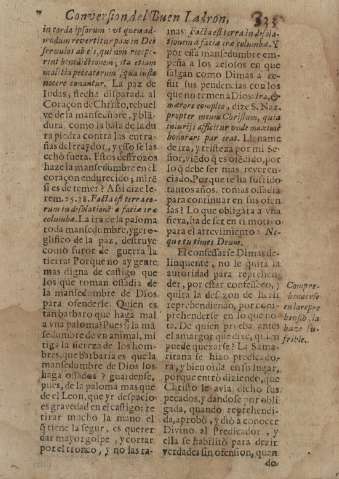 Conversion del Buen Ladron,
in corda ipsorum: vt quemad-
modum revertitur pax in Dei
servulos ab eis, qui eam
recipere
maluit peccatorum, qui a
nocere conantur. La paz de
Iodas, flecha disparada al
Coraçon de Christo, rebuel-
ve de la mansedumbre, y
blanda como la bala de la du-
ra piedra contra las entra-
ñas del traydor, y esso se las
echó fuera. Estos destrozos
haze la mansedumbre en el
coraçon endurecido; mirè
si es de temer? Assi dize Ie-
rem. 25.38. Facta est terra eo-
rum in desolationẽ a facie irae
columbæ. La ira de la paloma
toda mansedumbre, y ge-
roglifico de la paz, destruye
como furor de guerra la
tierra? Porque no ay gente
mas digna de castigo que
los que roman ossadia de
la mansedumbre de Dios
para ofenderle. Quien es
tan barbaro que haga mal
a vna paloma? Pues si la mã
sedumbre de vn animal, mi-
tiga la fiereza de los hom-
bres, que Barbaria es que la
mansedumbre de Dios los
haga ossados? guardense,
pues, de la paloma mas que
de el Leon, que yr despacio
es gravedad en el castigo: re
tirar mucho la mano el
q̃ tiene la segur, es querer
dar mayor golpe, y cortar
por el tronco, y no las ra-
mas. Facta est terra in deso-
lationem a facie iræ columbæ. Y
por esta mansedumbre em-
peña a los zelosos en que
salgan como Dimas a de-
zir sus pendencias con los
que no temen a Dios: Ira, &
mærore completo, dize S. Naz.
propter meum Christum, qui
iniurijs afficitur vnde maximè
honorari par erat. Lleneme
de ira, y tristeza por mi Se-
ñor, viẽdo q̃ es ofẽdido, por
lo q̃ debe ser mas, reveren-
ciado. Porque te ha sufrido
tantos años, tomas ossadia
para continuar en sus ofen-
sas? Lo que obligara a vna
fiera, ha de ser en ti motivo
para el atrevimiento? Ne-
que tu times Deum.
El confessarse Dimas de-
linquente, no le quita la
autoridad para reprehen-
der, por estar confesso, y
quita la desazon de la
reprehension, por com-
prehenderse en lo que no-
ta. De quien prueba antes
el amargo que dize, quien
puede quexarse? La Sama-
ritana se hizo predicado-
ra, y bien oìda en su lugar,
porque entrò diziendo, que
Christo le avia dicho sus
pecados, y dandose por obli-
gada, quando reprehendi-
da, aprobò, y diò a conocer
Divino al Predicador, y
ella se habilitò para dezir
verdades sin ofension, quan
do
Compre-
henderse
en la repre
hensiõ, la
haze su-
frible.